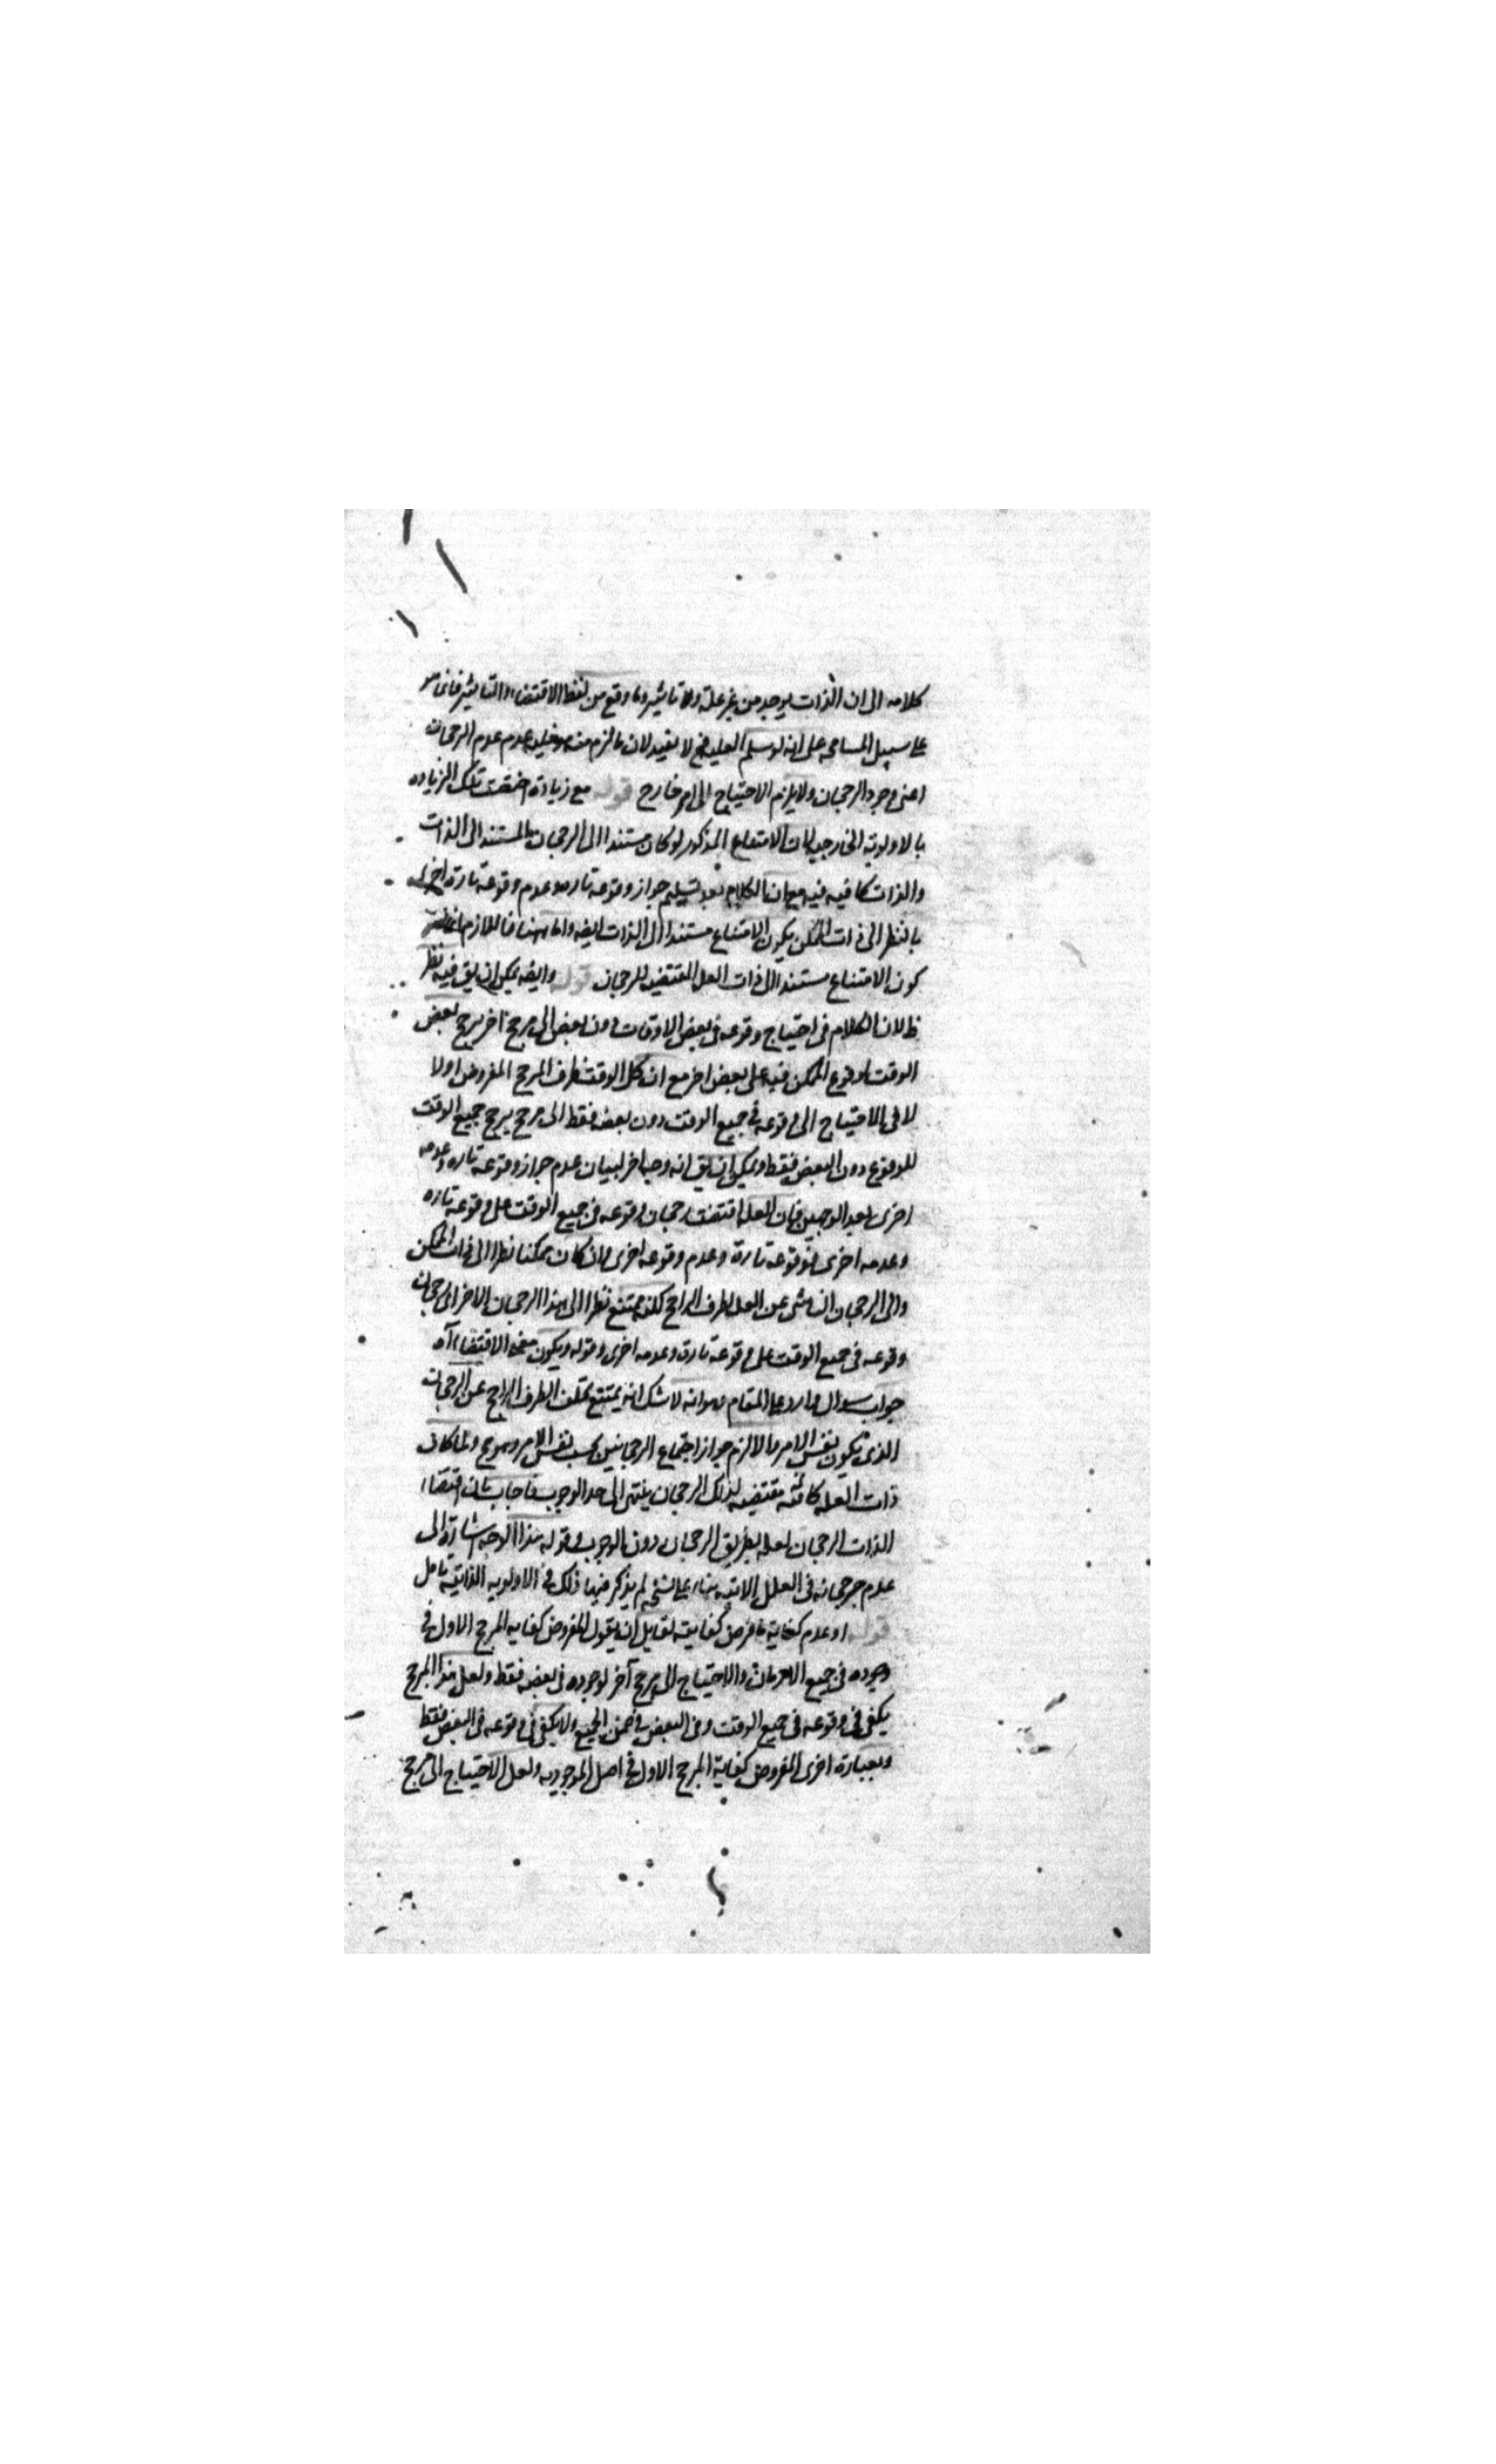 كلامه الى ان الذات يوجد من غير علة ولا تاثير وما وقع من لفظ الاقتضاء والتاثير فانما هو
على سبيل المسامحه على انه لو سلم العليه فح لا يفيد لان ما لزم منه عدم عدم الرجحان
اعنى وجود الرجحان ولا يلزم الاحتياج الى امر خارج قوله مع زيادة اختصت تلك الزياده
بالاولويه الخارجيه لان الامتناع المذكور لو كان مستندا الى الرجحان المستند الى الذات
والذات كافيه فيه مع ان الكلام بعد تسليم جواز وقوعه تاره وعدم وقوعه تارة اخرى
بالنظر الى ذات الممكن يكون الامتناع مستندا الى الذات ايضه واما ههنا فاللازم
كون الامتناع مستندا الى ذات العله المقتضيه للرجحان قوله وايضه يمكن ان يق فيه نظر
ظ لان الكلام فى احتياج وقوعه فى بعض الاوقات دون بعض الى مرجح اخر يرجح بعض
الوقت لوقوع الممكن فيه على بعض اخر مع ان كل الوقت ظرف المرجح المفروض اولا
لا فى الاحتياج الى وقوعه فى جميع الوقت دون بعضه فقط الى مرجح يرجح جميع الوقت
للوقوع دون البعض فقط ويمكن ان يق انه وجه اخر لبيان عدم جواز وقوعه تاره وعدمه
اخرى بعد الوجهين فان العله اقتضت رجحان وقوعه فى جميع الوقت على وقوعه تاره
وعدمه اخرى فوقوعه تارة وعدم وقوعه اخرى وان كان ممكنا نظرا الى ذات الممكن
والى الرجحان الناشى عن العله لطرف الراجح لكنه يمتنع نظرا الى هذا الرجحان الاخر اى رجحان
وقوعه فى جميع الوقت على وقوعه تارة وعدمه اخرى وقوله ويكون معنى الاقتضاء آه
جواب سوال وارد على المقام وهو انه لا شك انه يمتنع تخلف الطرف الراجح عن الرجحان
الذى يكون بنفس الامر والا لزم جواز اجتماع الرجحانين بحسب نفس الامر وهو مح ولما كان
ذات العله كافيه مقتضيه لذلك الرجحان ينتهى الى حد الوجوب فاجاب بان اقتضاء
الذات الرجحان لعله بطريق الرجحان دون الوجوب وقوله هذا الوجه اشارة الى
عدم جريانه فى العلل الاتيه بناء على نسخه لم يذكر فيها ذلك فى الاولويه الذاتية تامل
قوله او عدم كفاية ما فرض كفايته لقايل ان يقول المفروض كفايه المرجح الاول فى
وجوده فى جميع الازمان والاحتياج الى مرجح آخر لوجوده فى بعضه فقط ولعل هذا المرجح
يكفى فى وقوعه فى جميع الوقت وفى البعض فى ضمن الجميع ولا يكفى فى وقوعه فى البعض فقط
وبعبارة اخرى المفروض كفاية المرجح الاول فى اصل الموجوديه ولعل الاحتياج الى مرجح